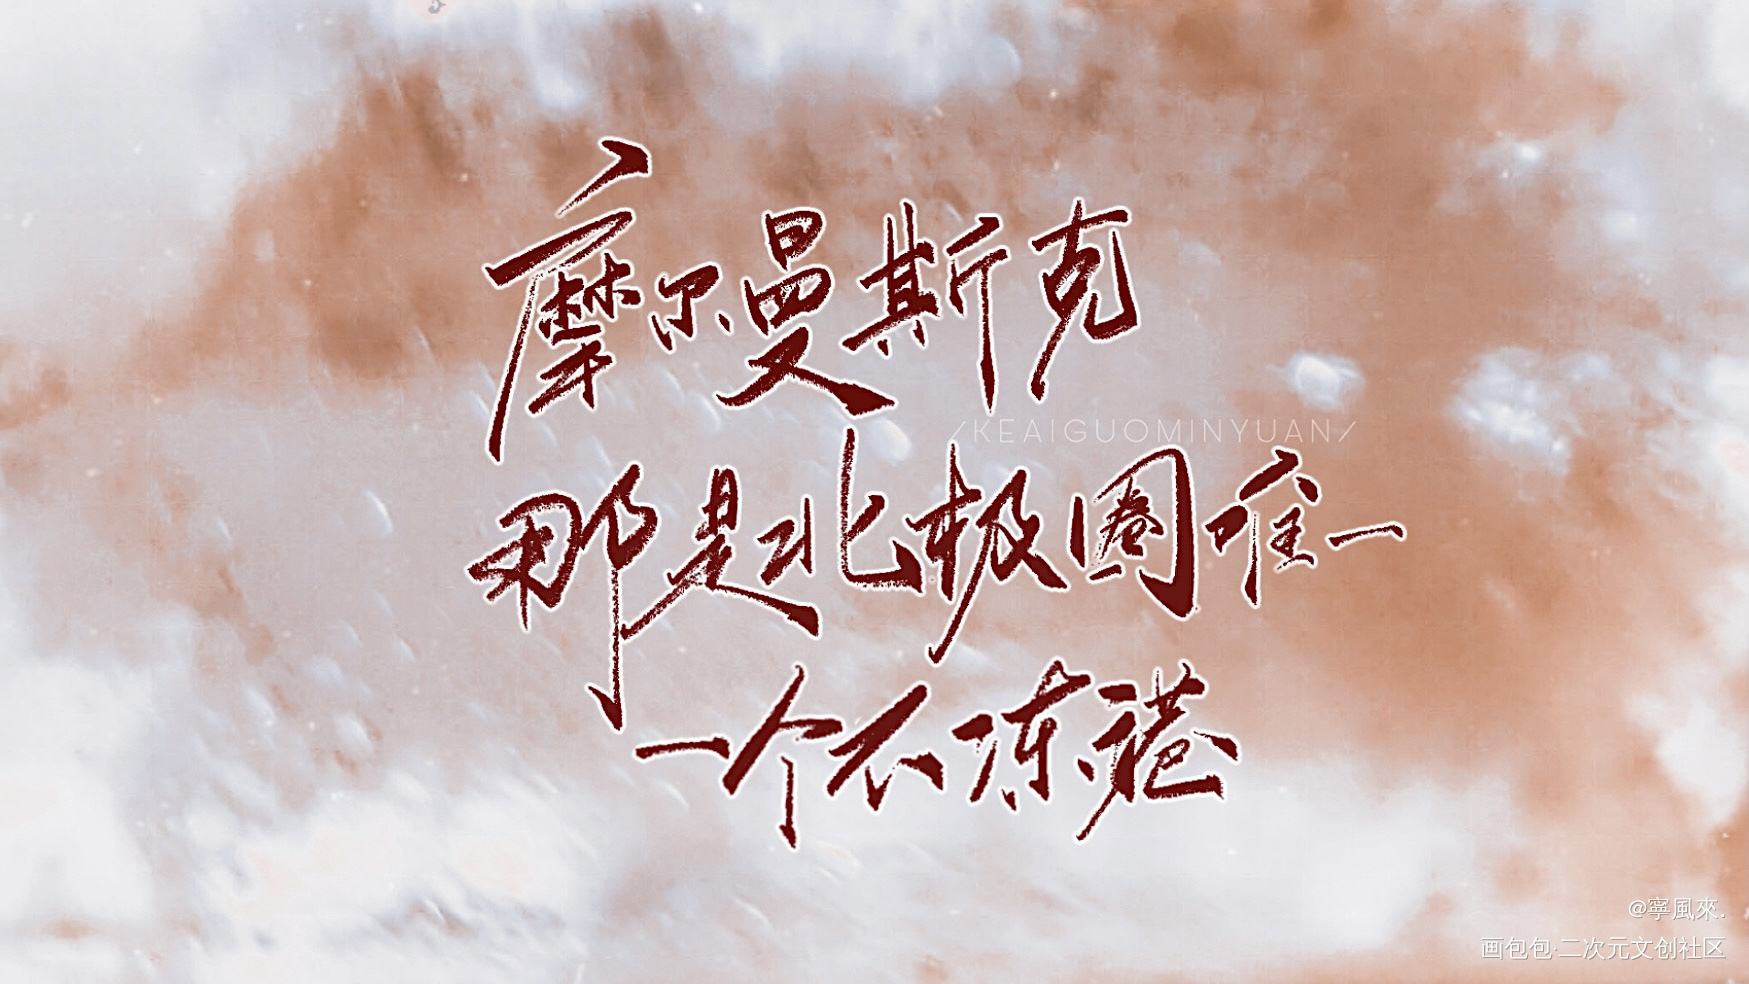 摩尔曼斯克
/KEAIGUOMINYUAN/
那是北极圈唯一
一个不冻港
@寧風來.
画包包·二次元文创社区